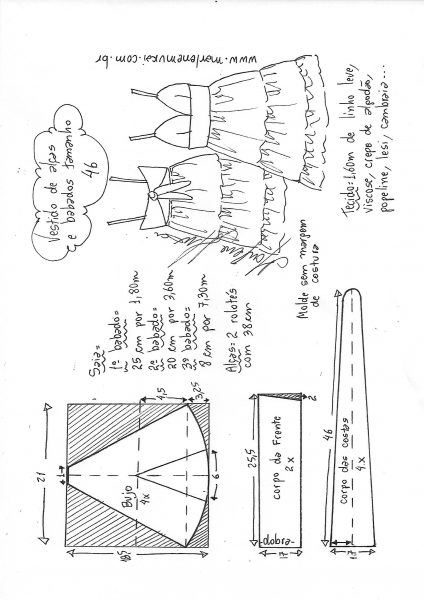 www.marlenemukai.com.br
Vestido de alças
e babados tamanho
46
Tecido: 1,60m de linho leve,
viscose, crepe de algodão,
popeline, lesi, cambraia...
Saia=
1º babado=
25 cm por 1,80m
2º babado=
20 cm por 3,60m
3º babado=
8 cm por 7,30m
Alças: 2 rolotês
com 38cm
Molde sem margem
de costura
21
18,5
1
4,5
3,25
6
Bujo
4x
25,5
17
2
-dobra-
corpo da frente
2x
46
17
corpo das costas
4x